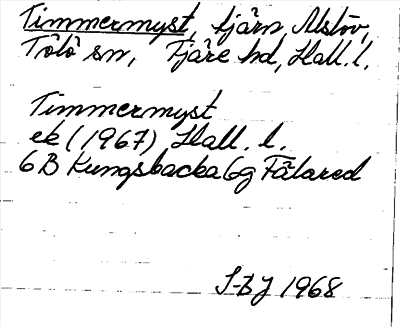 Timmermyst, tjärn, Alstöv,
Tölö sn, Fjäre hd, Hall. l.
Timmermyst
ek (1967) Hall. l.
6 B Kungsbacka 6g Fålared
S-BJ 1968